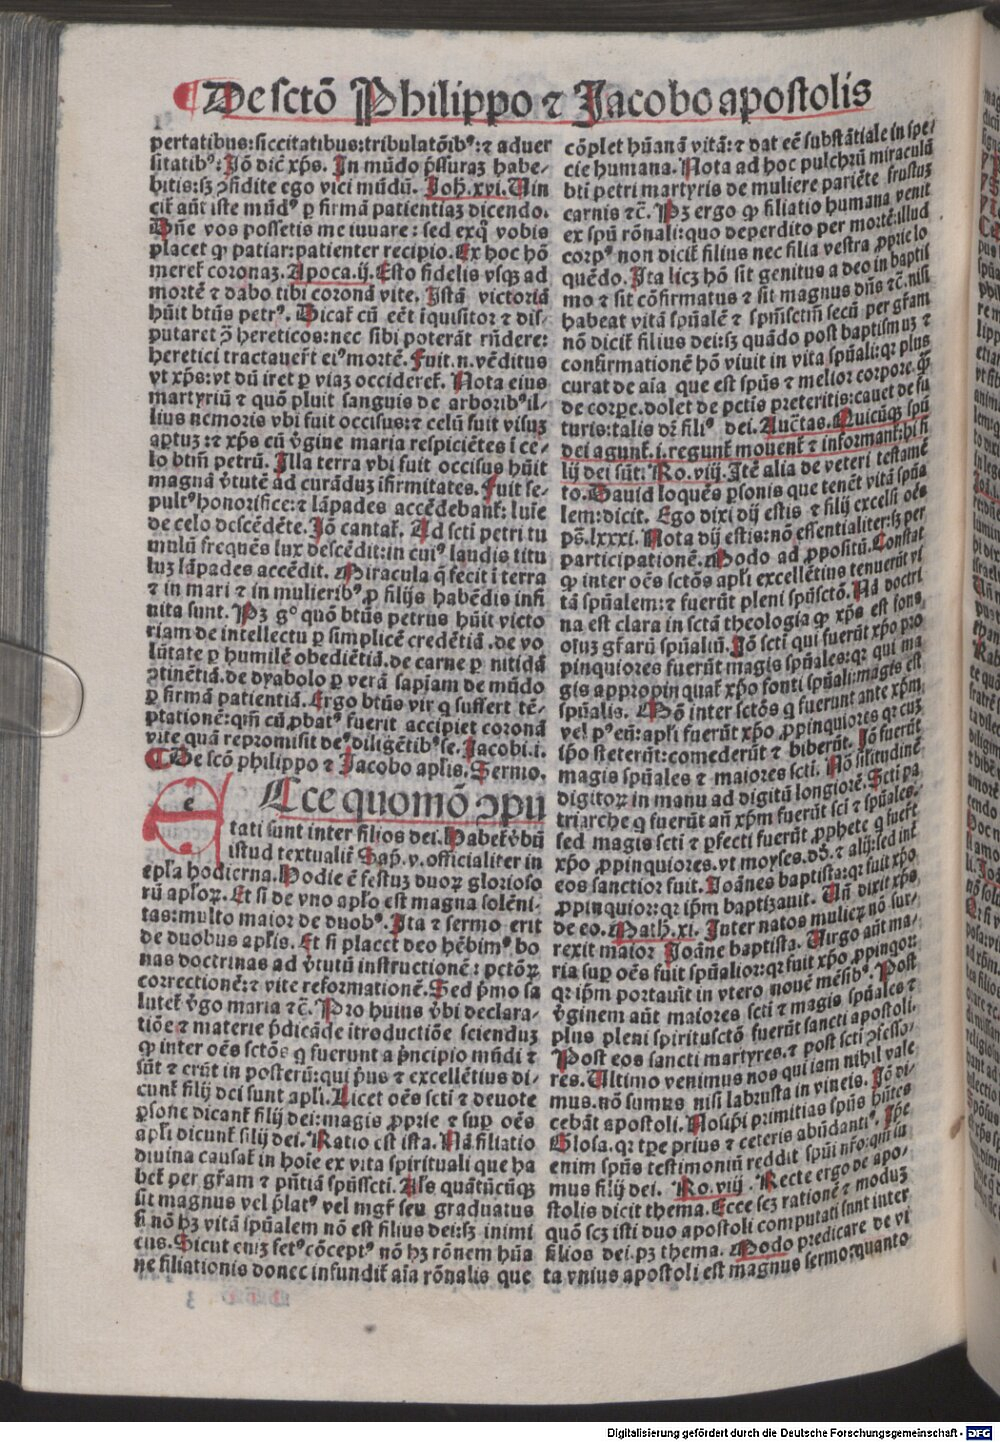 De sctō Philippo ⁊ Jacobo apostolis
pertatibus:siccitatibus:tribulatōibꝰ:⁊ aduer
sitatibꝰ: Jō dic̄ xp̄s. In mūdo p̄ssuraꝫ habe-
bitis:sꝫ ꝯfidite ego vici mūdū. Joh̄.xvi. Uin
cit̄ aūt iste mūdꝰ ꝑ firmā patientiaꝫ dicendo.
Dn̄e vos possetis me iuuare: sed exq̄ vobis
placet ꝙ patiar:patienter recipio. Ex hoc hō
meret̄ coronaꝫ. Apoca.ij. Esto fidelis vsqꝫ ad
mortē ⁊ dabo tibi coronā vite. Istā victoriā
hūit btūs petrꝰ. Dicat̄ cū eēt īquisitor ⁊ dis-
putaret ꝯ̄ hereticos:nec sibi poterāt rn̄dere:
heretici tractauer̄t eiꝰ mortē. Fuit.n.vēditus
vt xp̄s:vt dū iret ꝑ viaꝫ occideret̄. Nota eius
martyriū ⁊ quō pluit sanguis de arboribꝰ il-
lius nemoris vbi fuit occisus:⁊ celū fuit visuꝫ
aꝑtuꝫ:⁊ xp̄s cū v̄gine maria respiciētes ī cē-
lo btīm petrū. Illa terra vbi fuit occisus hūit
magnā v̄tutē ad curāduꝫ īfirmitates. Fuit se-
pultꝰ honorifice:⁊ lāpades accēdebant̄: lum̄e
de celo descēdēte. Jō cantat̄. Ad scti petri tu
mulū frequēs lux descēdit:in cuiꝰ laudis titu
luꝫ lāpades accēdit. Miracula q̄ fecit ī terra
⁊ in mari ⁊ in mulieribꝰ ꝓ filijs habēdis infi
nita sunt. Pꝫ gº quō btūs petrus hūit victo
riam de intellectu ꝑ simplicē credētiā.de vo
lūtate ꝑ humilē obediētiā.de carne ꝑ nitidā
ꝯtinētiā.de dyabolo ꝑ verā sapiam de mūdo
ꝑ firmā patientiā. Ergo btūs vir q suffert tē-
ptationē:qm̄ cū ꝓbatꝰ fuerit accipiet coronā
vite quā repromisit deꝰ diligētibꝰ se. Jacobi.i.
De scō philippo ⁊ Jacobo apl̄is. Sermo.
e Ecce quomō ꝯpu
tati sunt inter filios dei. Habet̄ v̄bū
istud textualit̄ Sap̄.v.officialiter in
epl̄a hodierna. Hodie ē festuꝫ duoꝝ glorioso
rū apl̄oꝝ. Et si de vno apl̄o est magna solēni-
tas:multo maior de duobꝰ. Ita ⁊ sermo erit
de duobus apl̄is. Et si placet deo hēbimꝰ bo
nas doctrinas ad v̄tutū instructionē: pctōꝝ
correctionē:⁊ vite reformationē. Sed p̄mo sa
lutet̄ v̄go maria ⁊c̄. Pro huius v̄bi declara-
tiōe ⁊ materie p̄dicāde ītroductiōe scienduꝫ
ꝙ inter oēs sctōs q fuerunt a p̄ncipio mūdi ⁊
sūt ⁊ erūt in posterū:qui pī̄us ⁊ excellētius di-
cunt̄ filij dei sunt apl̄i. Licet oēs scti ⁊ deuote
ꝑsone dicant̄ filij dei:magis ꝓprie ⁊ suꝑ oēs
apl̄i dicunt̄ filij dei. Ratio est ista. Nā filiatio
diuina causat̄ in hoīe ex vita spirituali que ha
bet̄ per gr̄am ⁊ pn̄tiā spūssc̄ti. Als̄ quātūcūqꝫ
sit magnus vel p̄latꝰ vel mgr̄ seu graduatus
si nō hꝫ vitā spūalem nō est filius dei:sꝫ inimi
cus. Sicut eniꝫ fetꝰ cōceptꝰ nō hꝫ rōnem hūa
ne filiationis donec infundit̄ aīa rōnalis que
cōplet hūanā vitā:⁊ dat eē substātiale in spe-
cie humana. Nota ad hoc pulchrū miraculū
bti petri martyris de muliere pariēte frustuꝫ
carnis ⁊c̄. Pꝫ ergo ꝙ filiatio humana venit
ex spū rōnali:quo deperdito per mortē:illud
corpꝰ non dicit̄ filius nec filia vestra ꝓprie lo
quēdo. Ita licꝫ hō sit genitus a deo in baptis
mo ⁊ sit cōfirmatus ⁊ sit magnus dn̄s ⁊c̄.nisi
habeat vitā spūalē ⁊ spm̄sctm̄ secū per gr̄am
nō dicit̄ filius dei:sꝫ quādo post baptismuꝫ ⁊
confirmationē hō viuit in vita spūali:qꝛ plus
curat de aīa que est spūs ⁊ melior corpore.ꝙ̄
de corꝑe.dolet de pctīs preteritis:cauet de fu
turis:talis dr̄ filiꝰ dei. Auc̄tas. Quicūqꝫ spū
dei agunt̄.i.regunt̄ mouent̄ ⁊ informant̄:hi fi
lij dei sūt. Ro.viij. Itē alia de veteri testamē
to. Dauid loquēs ꝑsonis que tenēt vitā spūa
lem:dicit. Ego dixi dij estis ⁊ filij excelsi oēs
ps̄.lxxxi. Nota dij estis:nō essentialiter:sꝫ per
participationē. Modo ad ꝓpositū. Constat
ꝙ inter oēs sctōs apl̄i excellētius tenuerūt vi
tā spūalem:⁊ fuerūt pleni spūsctō. Nā doctri
na est clara in sctā theologia ꝙ xp̄s est fons
oīuꝫ gr̄arū spūaliū. Jō scti qui fuerūt xp̄o pro
pinquiores fuerūt magis spūales:qꝛ qui ma
gis appropinquat̄ xp̄o fonti spūali:magis est
spūalis. Mō inter sctōs q fuerunt ante xp̄m
vel pꝰ eū:apl̄i fuerūt xp̄o ꝓpinquiores qꝛ cuꝫ
ip̄o steterūt:comederūt ⁊ biberūt. Jō fuerūt
magis spūales ⁊ maiores scti. Nō silitudinē
digitoꝝ in manu ad digitū longiorē. Scti pa
triarche q fuerūt añ xp̄m fuerūt scī ⁊ spūales.
sed magis scti ⁊ ꝑfecti fuerūt ꝓphete q fuer̄t
xp̄o ꝓpinquiores.vt moyses.dd̄.⁊ alij:sed int̄
eos sanctior fuit. Joānes baptista:qꝛ fuit xp̄o
ꝓpinquior:qꝛ ip̄m baptizauit. Uñ dixit xp̄s
de eo. Math̄.xi. Inter natos mulieꝝ nō sur-
rexit maior Joāne baptista. Uirgo aūt ma-
ria suꝑ oēs fuit spūalior:qꝛ fuit xp̄o ꝓpinqoꝝ:
qꝛ ip̄m portauit in vtero nouē mēsibꝰ. Post
v̄ginem aūt maiores scti ⁊ magis spūales ⁊
plus pleni spiritusctō fuerūt sancti apostoli.
Post eos sancti martyres.⁊ post scti ꝯfesso-
res. Ultimo venimus nos qui iam nihil vale
mus.nō sumus nisi labrusta in vineis. Jō di-
cebāt apostoli. Nosip̄i primitias spūs hn̄tes
Glosa.qꝛ tꝑe prius ⁊ ceteris abūdantiꝰ. Ip̄e
enim spūs testimoniū reddit spūi nr̄o:qm̄ su
mus filij dei. Ro.viij. Recte ergo de apo-
stolis dicit thema. Ecce scꝫ rationē ⁊ moduꝫ
quō scꝫ isti duo apostoli computati sunt inter
filios dei.pꝫ thema. Modo predicare de vi
ta vnius apostoli est magnus sermo:quanto
Digitalisierung gefördert durch die Deutsche Forschungsgemeinschaft - DFG